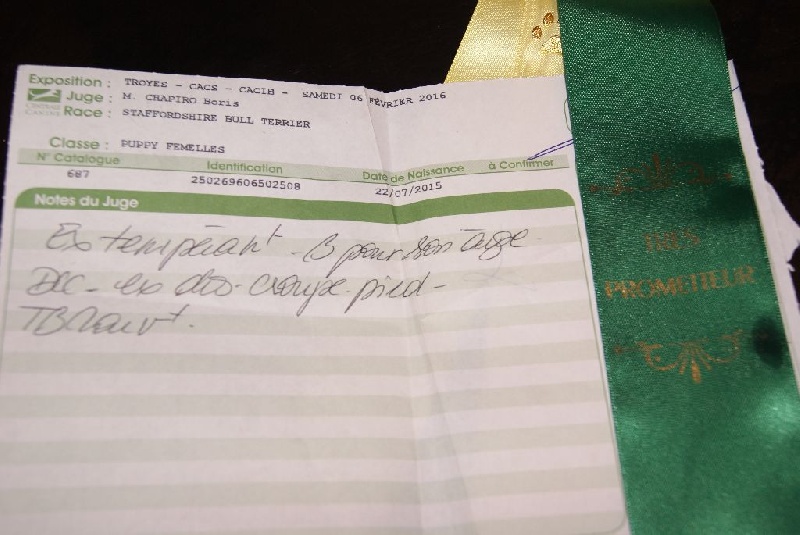 Exposition : TROYES - CACS - CACIB - SAMEDI 06 FÉVRIER 2016
Juge : M. CHAPIRO Boris
CENTRALE CANINE
Race : STAFFORDSHIRE BULL TERRIER
Classe : PUPPY FEMELLES
N° Catalogue Identification Date de Naissance à Confirmer
687 250269606502508 22/07/2015
Notes du Juge
Ex tempérant - B pour son âge
DSC - ex dos - croupe - pied -
TB mouvt.
TRÈS
PROMETTEUR